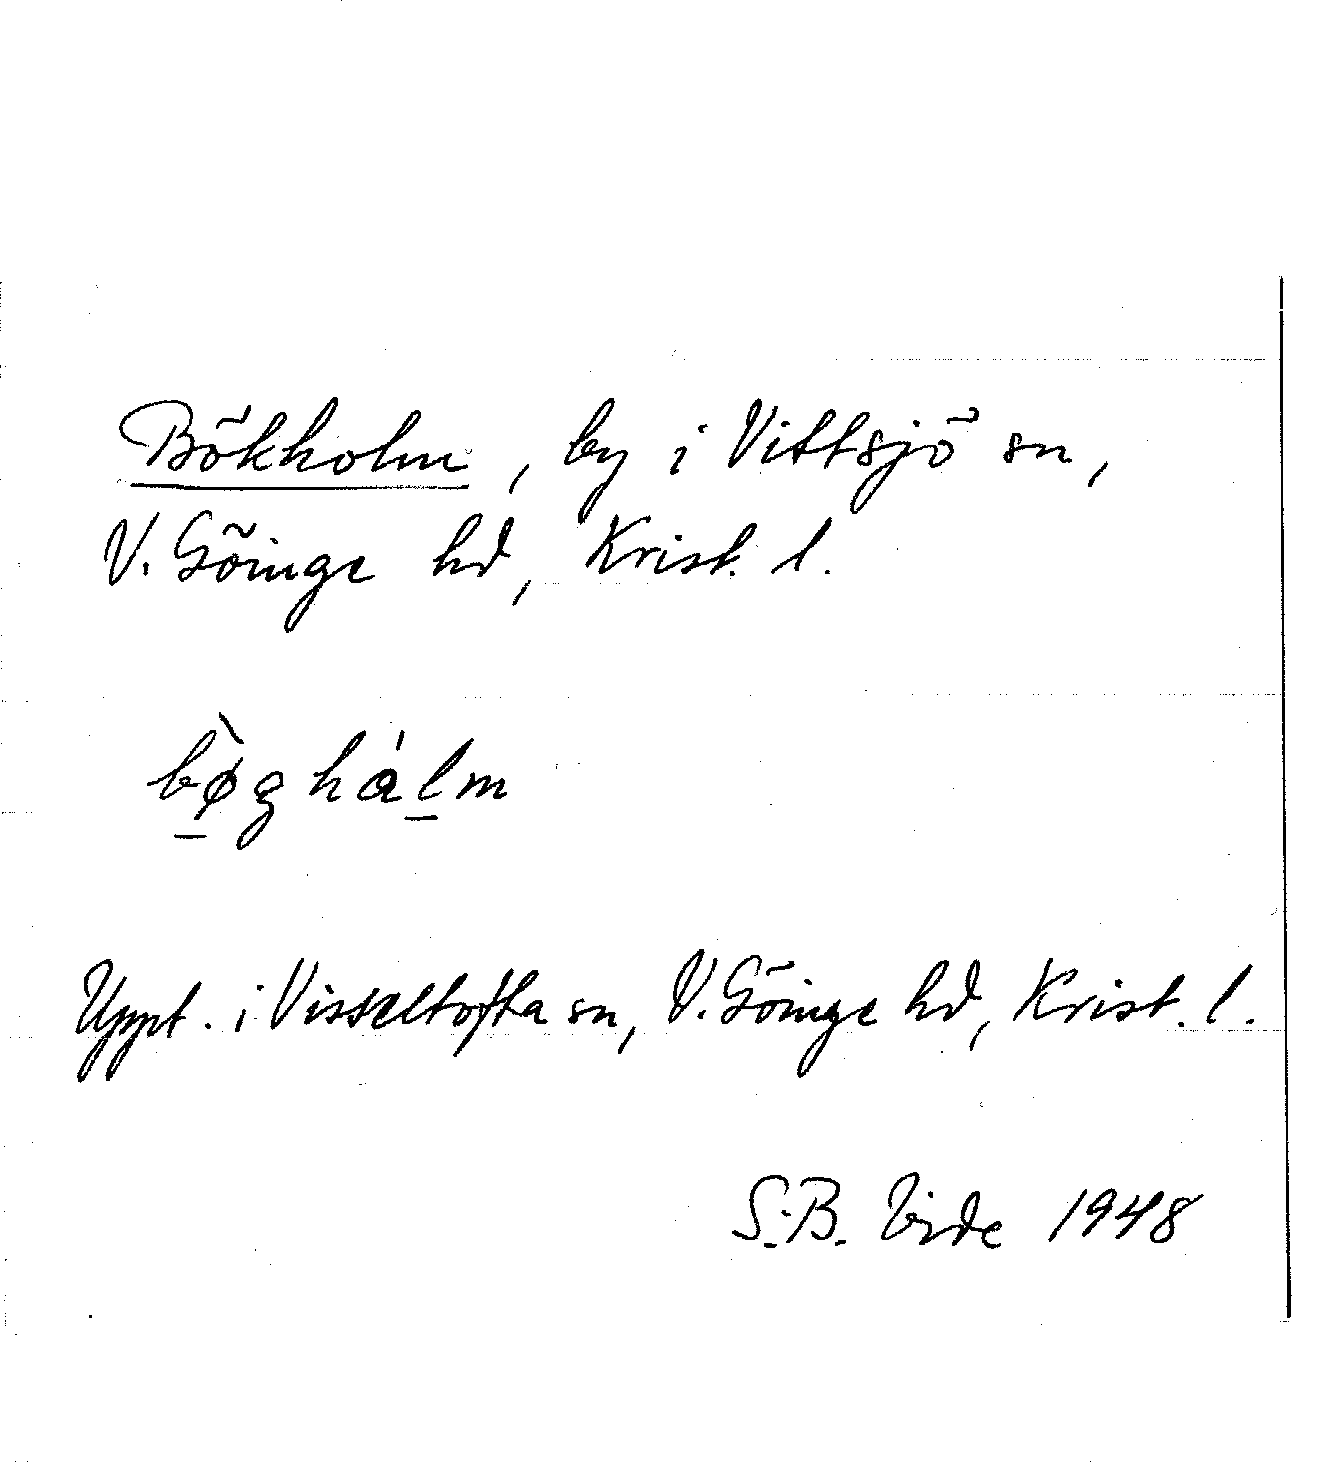 Bökholm, by i Vittsjö sn,
V. Göinge hd, Krist. l.
bø̀g hálm
Uppt. i Visseltofta sn, V. Göinge hd, Krist. l.
S. B. Vide 1948